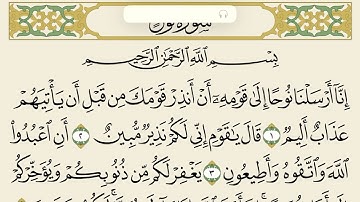 بِسْمِ اللَّهِ الرَّحْمَٰنِ الرَّحِيمِ
إِنَّا أَرْسَلْنَا نُوحًا إِلَىٰ قَوْمِهِ أَنْ أَنذِرْ قَوْمَكَ مِن قَبْلِ أَن يَأْتِيَهُمْ
عَذَابٌ أَلِيمٌ ١ قَالَ يَٰقَوْمِ إِنِّي لَكُمْ نَذِيرٌ مُّبِينٌ ٢ أَنِ اعْبُدُوا
اللَّهَ وَاتَّقُوهُ وَأَطِيعُونِ ٣ يَغْفِرْ لَكُم مِّن ذُنُوبِكُمْ وَيُؤَخِّرْكُمْ